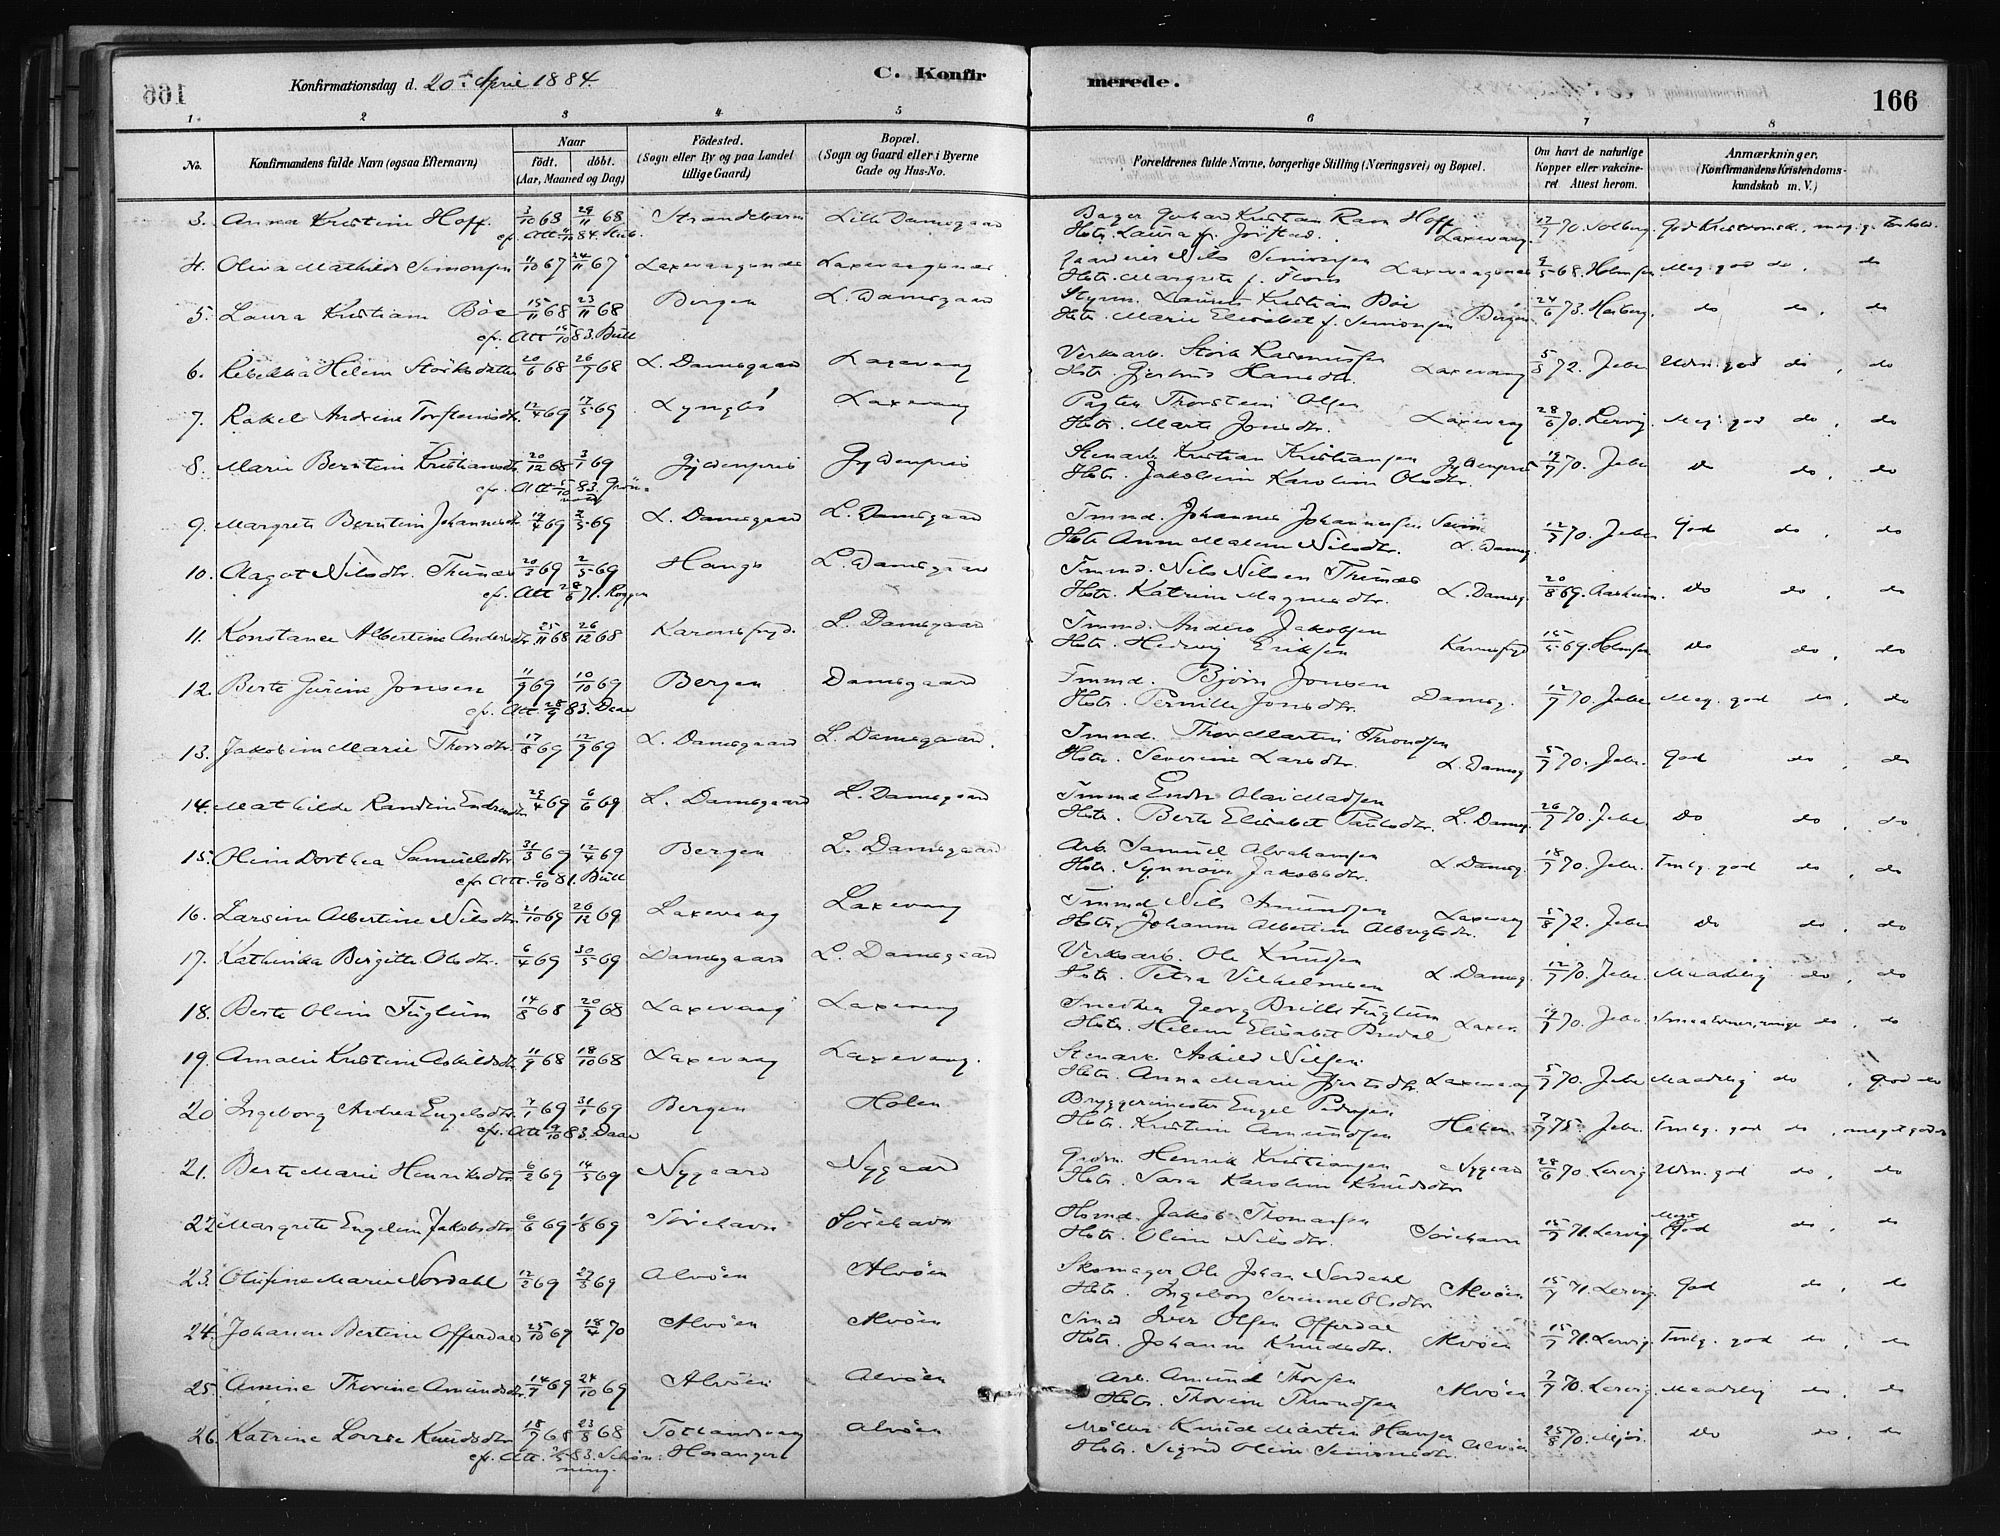 Konfirmationsdag d. 20de April 1884.
C. Konfirmerede.
166
1 2 3 4 5 6 7 8
No. Konfirmandens fulde Navn (ogsaa Efternavn) Naar født. døbt. (Aar, Maaned og Dag) Fødested. (Sogn eller By og paa Landet tillige Gaard) Bopæl. (Sogn og Gaard eller i Byerne Gade og Hus-No. Forældrenes fulde Navne, borgerlige Stilling (Næringsvei) og Bopæl. Om havt de naturlige Kopper eller vakcineret Attest herom. Anmærkninger. (Konfirmandens Kristendomskundskab m. V.)
3. Anna Kristine Hoff. 3/10 68 29/11 68 Strandebarm Lille Damsgaard Bager Gerhard Kristian Ravn Hoff Hstr. Laura f. Jørstad. Laxevaag. 12/7 70. Solberg.
4. Oliva Mathilde Simonsen 11/10 67 24/11 67 Laxevaagsnes Laxevaagsnes Gaardeier Nils Simonsen Hstr. Margrete f. Laxevaagsnes 9/5 68. Holmsen Meg. god do, do
5. Laura Kristiane Bøe 15/11 68 23/11 68 Bergen L. Damsgaard Styrm. Laurits Kristian Bøe Hstr. Marie Elisabet f. Simonsen Bergen 24/6 73. do do, do
cfr. Att 15/10 83. Bull
6. Rebekka Helene Storksdatter 20/6 68 26/7 68 L. Damsgaard Laxevaag Verksarb. Stork Rasmussen Hstr. Gjertrud Hansdtr. Laxevaag 5/8 72. Jebe Udm. god do, do
7. Rakel Andrine Torsteinsdtr. 12/4 69 17/5 69 Lyngbø Laxevaag Pagter Thorstein Olsen Hstr. Marte Jonsdtr. Laxevaag 28/6 70. Lervig. Meg. god do, do
8. Marie Berntine Kristiansdtr. 20/12 68 3/1 69 Gyldenpris Gyldenpris Stenarb. Kristian Kristiansen Hstr. Jakobine Karoline Olsdtr. Gyldenpris 19/7 70. Jebe Do do, do
9. Margrete Berntine Johannesdtr. 19/4 69 2/5 69 L. Damsgaard L. Damsgaard Tmmd. Johannes Johannessen Seim Hstr. Anne Malene Nilsdtr. L. Damsg. 12/7 70. Jebe God do, do
10. Aagot Nilsdtr. Thunæs 20/3 69 2/5 69 Haugs L. Damsgaard Tmmd. Nils Nilsen Thunæs Hstr. Katrine Magnesdtr. L. Damsg. 20/8 69. Do do, do
11. Konstance Albertine Andersdtr. 25/11 68 26/12 68 Karensfryd. L. Damsgaard Tmmd. Anders Jakobsen Hstr. Hedevig Eriksen Karensfryd 15/5 69. Holmsen Do do, do
12. Berte Gurine Jonsen 11/9 69 10/10 69 Bergen Damsgaard Tmmd. Bjørn Jonsen Hstr. Pernille Jonsdtr. Damsg. 12/7 70. Jebe Meg. god do, do
cfr. Att 28/9 83. Daae
13. Jakobine Marie Thorsdtr. 17/8 69 12/9 69 L. Damsgaard L. Damsgaard. Tmmd. Thor Martin Throndsen Hstr. Severine Larsdtr. L. Damsg. 5/7 70. Jebe. God do, do
14. Mathilde Randine Endresdtr. 29/4 69 6/6 69 L. Damsgaard L. Damsgaard Tmmd Endre Olai Madsen Hstr. Berte Elisabet Paulsdtr. L. Damsg. 26/7 70. Jebe. Do do, do
15. Oline Dorthea Samuelsdtr. 31/3 69 12/4 69 Bergen L. Damsgaard Arb. Samuel Abrahamsen Hstr. Synnøve Jakobsdtr. L. Damsg. 18/7 70. Jebe. Tmlg. god do, do
cfr. Att. 6/10 81. Bull
16. Larsine Albertine Nilsdtr. 21/10 69 26/12 69 Laxevaag Laxevaag Tmmd Nils Amundsen Hstr. Johanne Albertine Albregtsdtr. Laxevaag 5/8 72. Jebe Do do, do
17. Kathinka Birgitte Olsdtr. 6/4 69 30/5 69 Damsgaard L. Damsgaard Verksarb. Ole Knudsen Hstr. Petra Vilhelmsen L. Damsg. 12/7 70. Jebe. Maadelig do, do
18. Berte Oline Fuglum 14/8 68 20/9 68 Laxevaag Laxevaag Smed Georg Fuglum Hstr. Helene Elisabet Bredal Laxev. 19/7 70. Jebe do, do
19. Amalie Kristine Askildsdtr. 11/9 68 18/10 68 Laxevaag Laxevaag. Stenarb. Askild Nilsen. Hstr. Anna Marie Gjertsdtr. Laxevaag 5/7 70. Jebe Maadelig do, god do
20 Ingeborg Andrea Engelsdtr. 7/1 69 31/1 69 Bergen Holen Bryggermester Engel Pedersen Hstr. Kristine Amundsen Holen 7/7 75. Jebe. Tmlg. god do, meget god do
cfr. Att 9/10 83. Daae
21. Berte Marie Henriksdtr. 6/2 69 14/3 69 Nygaard Nygaard Henrik Kristiansen Hstr. Sara Karoline Knudsdtr. Nygaard 28/6 70. Lervig Udm. god do, do
22 Margrete Engeline Jakobsdtr. 6/6 69 1/8 69 Sørehavn Sørehavn Hsmd. Jakob Thomassen Hstr. Oline Nilsdtr. Sørehavn 15/7 71. Lervig Meget God do, do
23. Olufine Marie Nordahl 12/2 69 29/3 69 Alvøen Alvøen Skomager Ole Johan Nordahl Hstr. Ingeborg Serinne Olsdtr. Alvøen 15/7 71. Lervig God do, do
24. Johanne Bertine Offerdal 25/10 69 18/4 70 Alvøen Alvøen Smed Iver Olsen Offerdal Hstr. Johanne Knudsdtr. Alvøen 15/7 71. Lervig. Tmlg. god do, do
25. Amine Thorine Amundsdtr. 14/7 69 24/10 69 Alvøen Alvøen Arb. Amund Thorsen Hstr. Thorine Throndsen Alvøen 7/7 70. Lervig. Maadelig do, do
26. Katrine Lovise Knudsdtr. 18/7 68 23/8 68 Totlandsvaag Hosanger Alvøen Møller Knud Martin Hansen Hstr. Sigrid Oline Simonsdtr. Alvøen 25/8 70. Do do, do